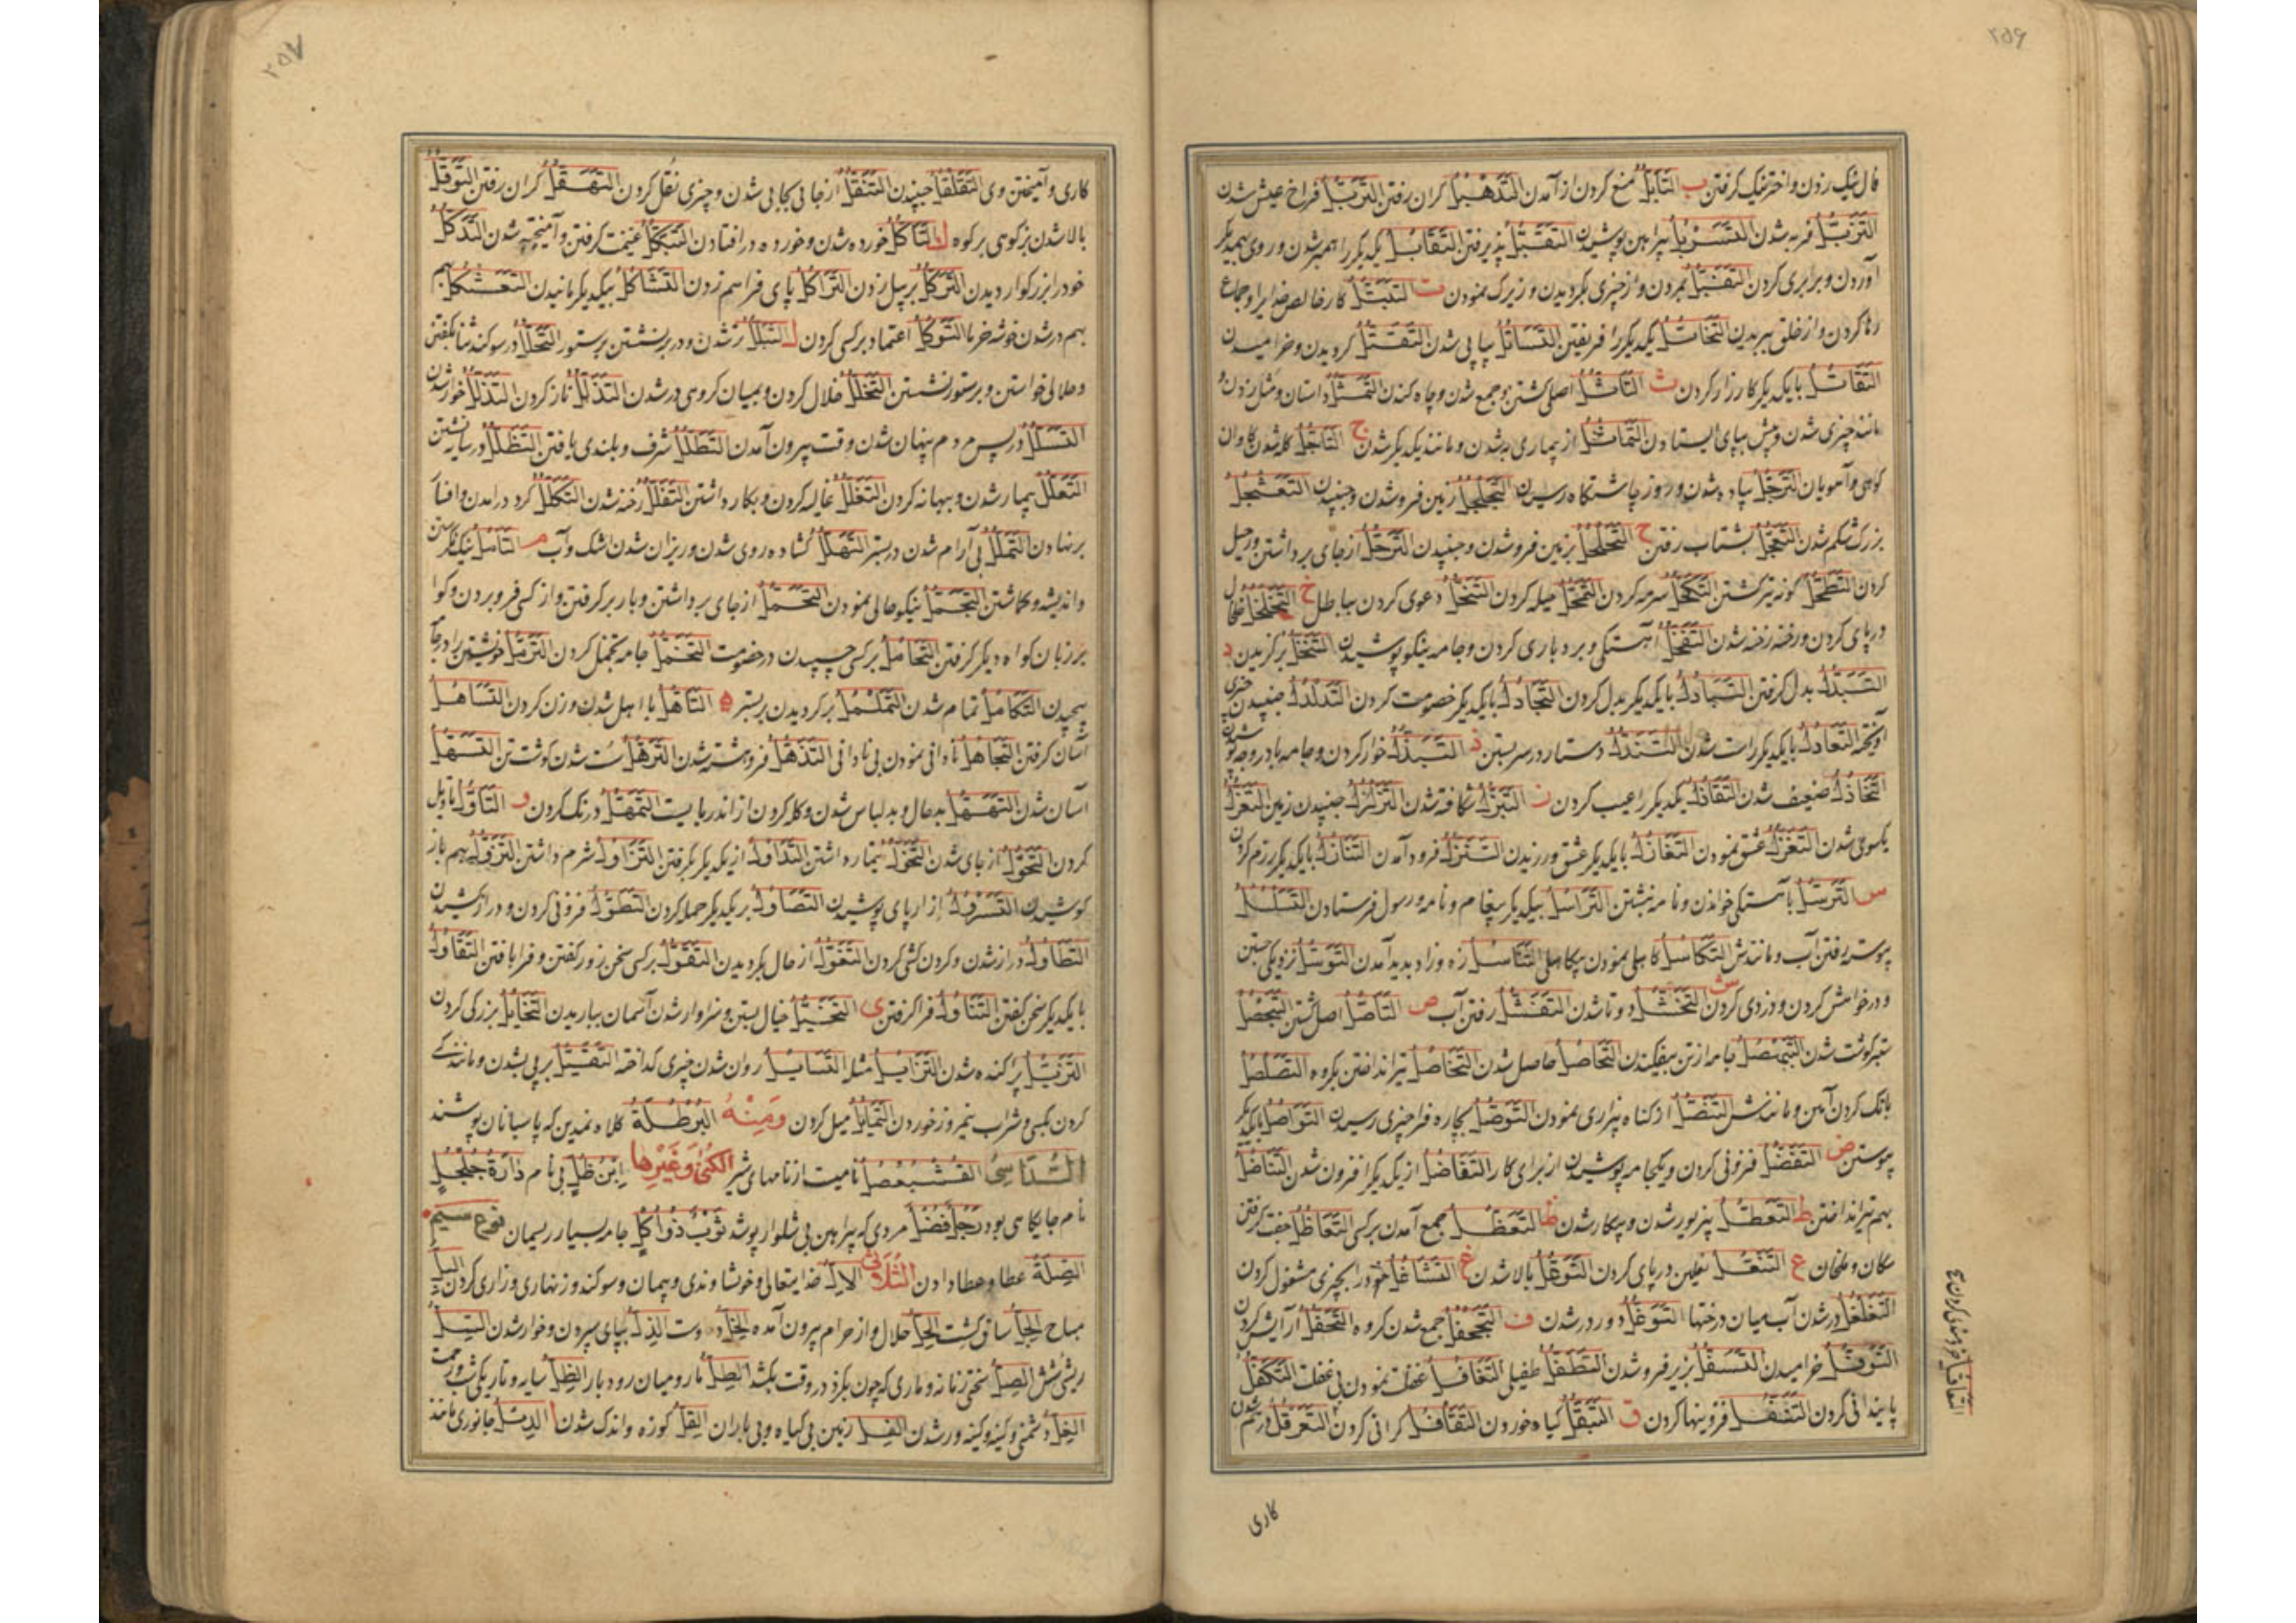 ۲۵۶
فال نیک زدن و اختر نیک گرفتن ب التأبل منع کردن از آمدن التدهبل گران رفتن التربل فراخ عیش شدن
التزبل فربه شدن التسربل پیراهن پوشیدن التقبل پذیرفتن التقابل یکدیگر را همبر شدن و روی بهمدیگر
آوردن و برابری کردن
رها کردن و از خلق ببریدن التخاتل یکدیگر را فریفتن التساتل پیاپی شدن التقتل گردیدن و خرامیدن
التقاتل با یکدیگر کارزار کردن ث التأثل اصلی گشتن و جمع شدن و چاه کندن التمثل داستان و مثل زدن و
مانند چیزی شدن و پیش بپای ایستادن التماثل از بیماری به شدن و مانند یکدیگر شدن ج التأجل گله شدن گاوان
کوهی و آهوان الترجل پیاده شدن و روز چاشتگاه رسیدن التجلجل زمین فرو شدن و جنبیدن التعثجل
بزرگ شکم شدن التعجل بشتاب رفتن ح التحلحل بزمین فرو شدن و جنبیدن الترحل از جای برداشتن و رحیل
کردن التطحل گونه تیره گشتن التکحل سرمه کردن التمحل حیله کردن التنحل دعوی کردن بباطل خ التخلخل خلخال
در پای کردن و رخنه رخنه شدن التفخل آهستگی و بردباری کردن و جامه نیکو پوشیدن التنخل برگزیدن د
التبدل بدل گرفتن التبادل با یکدیگر بدل کردن التجادل با یکدیگر خصومت کردن التدلدل جنبیدن چیزی
آویخته التعادل با یکدیگر راست شدن التندل دستار در سر بستن ذ التبذل خوار کردن و جامه بادروجه پوشیدن
التخاذل ضعیف شدن التقاذل یکدیگر را عیب کردن ز التبزل شکافته شدن التزلزل جنبیدن زمین التعزل
یکسوی شدن التغزل عشق نمودن التغازل با یکدیگر عشق ورزیدن التنزل فرود آمدن التنازل با یکدیگر رزم کردن
س الترسل بآهستگی خواندن و نامه نبشتن التراسل بیکدیگر پیغام و نامه و رسول فرستادن التسلسل
پیوسته رفتن آب و مانندش التکاسل کاهلی نمودن بیکاهلی التناسل زه و زاد پدید آمدن التوسل نزدیکی جستن
و درخواش کردن و دزدی کردن ش التخنشل دو تا شدن التقنشل رفتن آب ص التأصل اصل گشتن التبحصل
ستبر گوشت شدن التبهصل جامه از تن بیفکندن التحاصل حاصل شدن التخاصل تیر انداختن بگروه التصلصل
بانگ کردن آهن و مانندش التنصل از گناه بیزاری نمودن التوصل بچاره فرا چیزی رسیدن التواصل با یکدیگر
پیوستن ض التفضل فزونی کردن و یکجامه پوشیدن از برای کار التفاضل از یکدیگر افزون شدن التناضل
بهم تیر انداختن ط التعطل بی زیور شدن و بیکار شدن ظ التعظل جمع آمدن بر کسی التعاظل جفت گرفتن
سگان و ملخان ع التنعل نعلین در پای کردن التوعل بالا شدن غ التشاغل خود را بچیزی مشغول کردن
التغلغل در شدن آب میان درختها التوغل دور در شدن ف التجحفل جمع شدن گروه التحفل آرایش کردن
الترفل خرامیدن التسفل بزیر فرو شدن التطفل طفیلی التغافل غفلت نمودن بی غفلت التکفل
پایندانی کردن التنفل فزونیها کردن ق التبقل گیاه خوردن التثاقل گرانی کردن التعرقل در هم شدن
کاری
۲۵۷
کاری و آمیختن وی التقلقل جنبیدن التنقل از جائی بجائی شدن و چیزی نقل کردن التهقل گران رفتن التوقل
بالا شدن بز کوهی بر کوه ك التأکل خورده شدن و خورده درافتادن التبکل غنیمت گرفتن و آمیخته شدن التدکل
خود را بزرگوار دیدن الترکل بر بیل زدن التراکل پای فراهم زدن التشاکل بیکدیگر مانیدن التعثکل بهم
بهم در شدن خوشه خرما التوکل اعتماد بر کسی کردن ل التبلل تر شدن و در بر نشستن بر ستور التحلل در سوگند ثنا گفتن
و حلالی خواستن و بر ستور نشستن التخلل خلال کردن و بمیان گروهی در شدن التدلل ناز کردن التذلل خوار شدن
التسلل در پس مردم پنهان شدن وقت بیرون آمدن التطلل شرف و بلندی یافتن التظلل در سایه نشستن
التعلل بیمار شدن و بهانه کردن التغلل غالیه کردن و بکار داشتن التفلل رخنه شدن التکلل گرد درآمدن و افسا
بر نهادن التململ بی آرام شدن در بستر التهلل گشاده روی شدن و ریزان شدن اشک و آب م التأمل نیک نگریستن
و اندیشه و گماشتن التجمل نیکو حالی نمودن التحمل از جای برداشتن و بار برگرفتن و از کسی فرو بردن و گوا
بر زبان گواه دیگر گرفتن التحامل بر کسی چسبیدن در خصومت التخمل جامه مخمل کردن التزمل خویشتن را در جامه
پیچیدن التکامل تمام شدن التململ برگردیدن بر بستر ه التأهل با اهل شدن و زن کردن التساهل
آسان گرفتن التجاهل نادانی نمودن بی نادانی التذهل فروهشته شدن الترهل سست شدن گوشت تن التسهل
آسان شدن التهقل بدحال و بدلباس شدن و گله کردن از اندربایست التمهل درنگ کردن و التأول تأویل
کردن التحول از جای شدن التخول تیمار داشتن التداول از یکدیگر بگرفتن التزاول شرم داشتن التزول بهم باز
کوشیدن التسرول ازار پای پوشیدن التصاول بر یکدیگر حمله کردن التطول فزونی کردن و دراز کشیدن
التطاول دراز شدن و گردن کشی کردن التغول از حال بگردیدن التقول بر کسی سخن زور گفتن و فرا بافتن التقاول
با یکدیگر سخن گفتن التناول فرا گرفتن ی التخیل خیال بستن و سزاوار شدن آسمان بباریدن التخایل بزرگی کردن
التزیل پراکنده شدن التزایل مثله التسایل روان شدن چیزی گداخته التقیل بر پی بشدن و مانندگی
کردن بکسی و شراب نیمروز خوردن التمایل میل کردن ومنه البرطلة کلاه نمدین که پاسبانان پوشند
السداسی القشبعصل نامیست از نامهای شیر الکنی وغیرها ابن ظل بی نام دارة جلجل
نام جایگاهی بود رجل فضل مردی که پیراهن بی شلوار پوشد ثوب ذو اکل جامه بسیار ریسمان نوع سیم
الصلة عطا و عطا دادن الثلاثی الال خدایتعالی و خویشاوندی و پیمان و سوگند و زنهاری و زاری کردن البل
مباح الحل ساق کشت الحل حلال و از حرام بیرون آمده الخل دوست الذل بپای سپردن و خوار شدن السل
ریش شش الصل سختی زمانه و ماری که چون بگزد در وقت بکشد الطل مار و میان رودبار الظل سایه و تاریکی شب و رحمت
الغل دشمنی و کینه و کینه ور شدن الفل زمین بی گیاه و بی باران القل کوزه و اندک شدن الدئل جانوری مانند